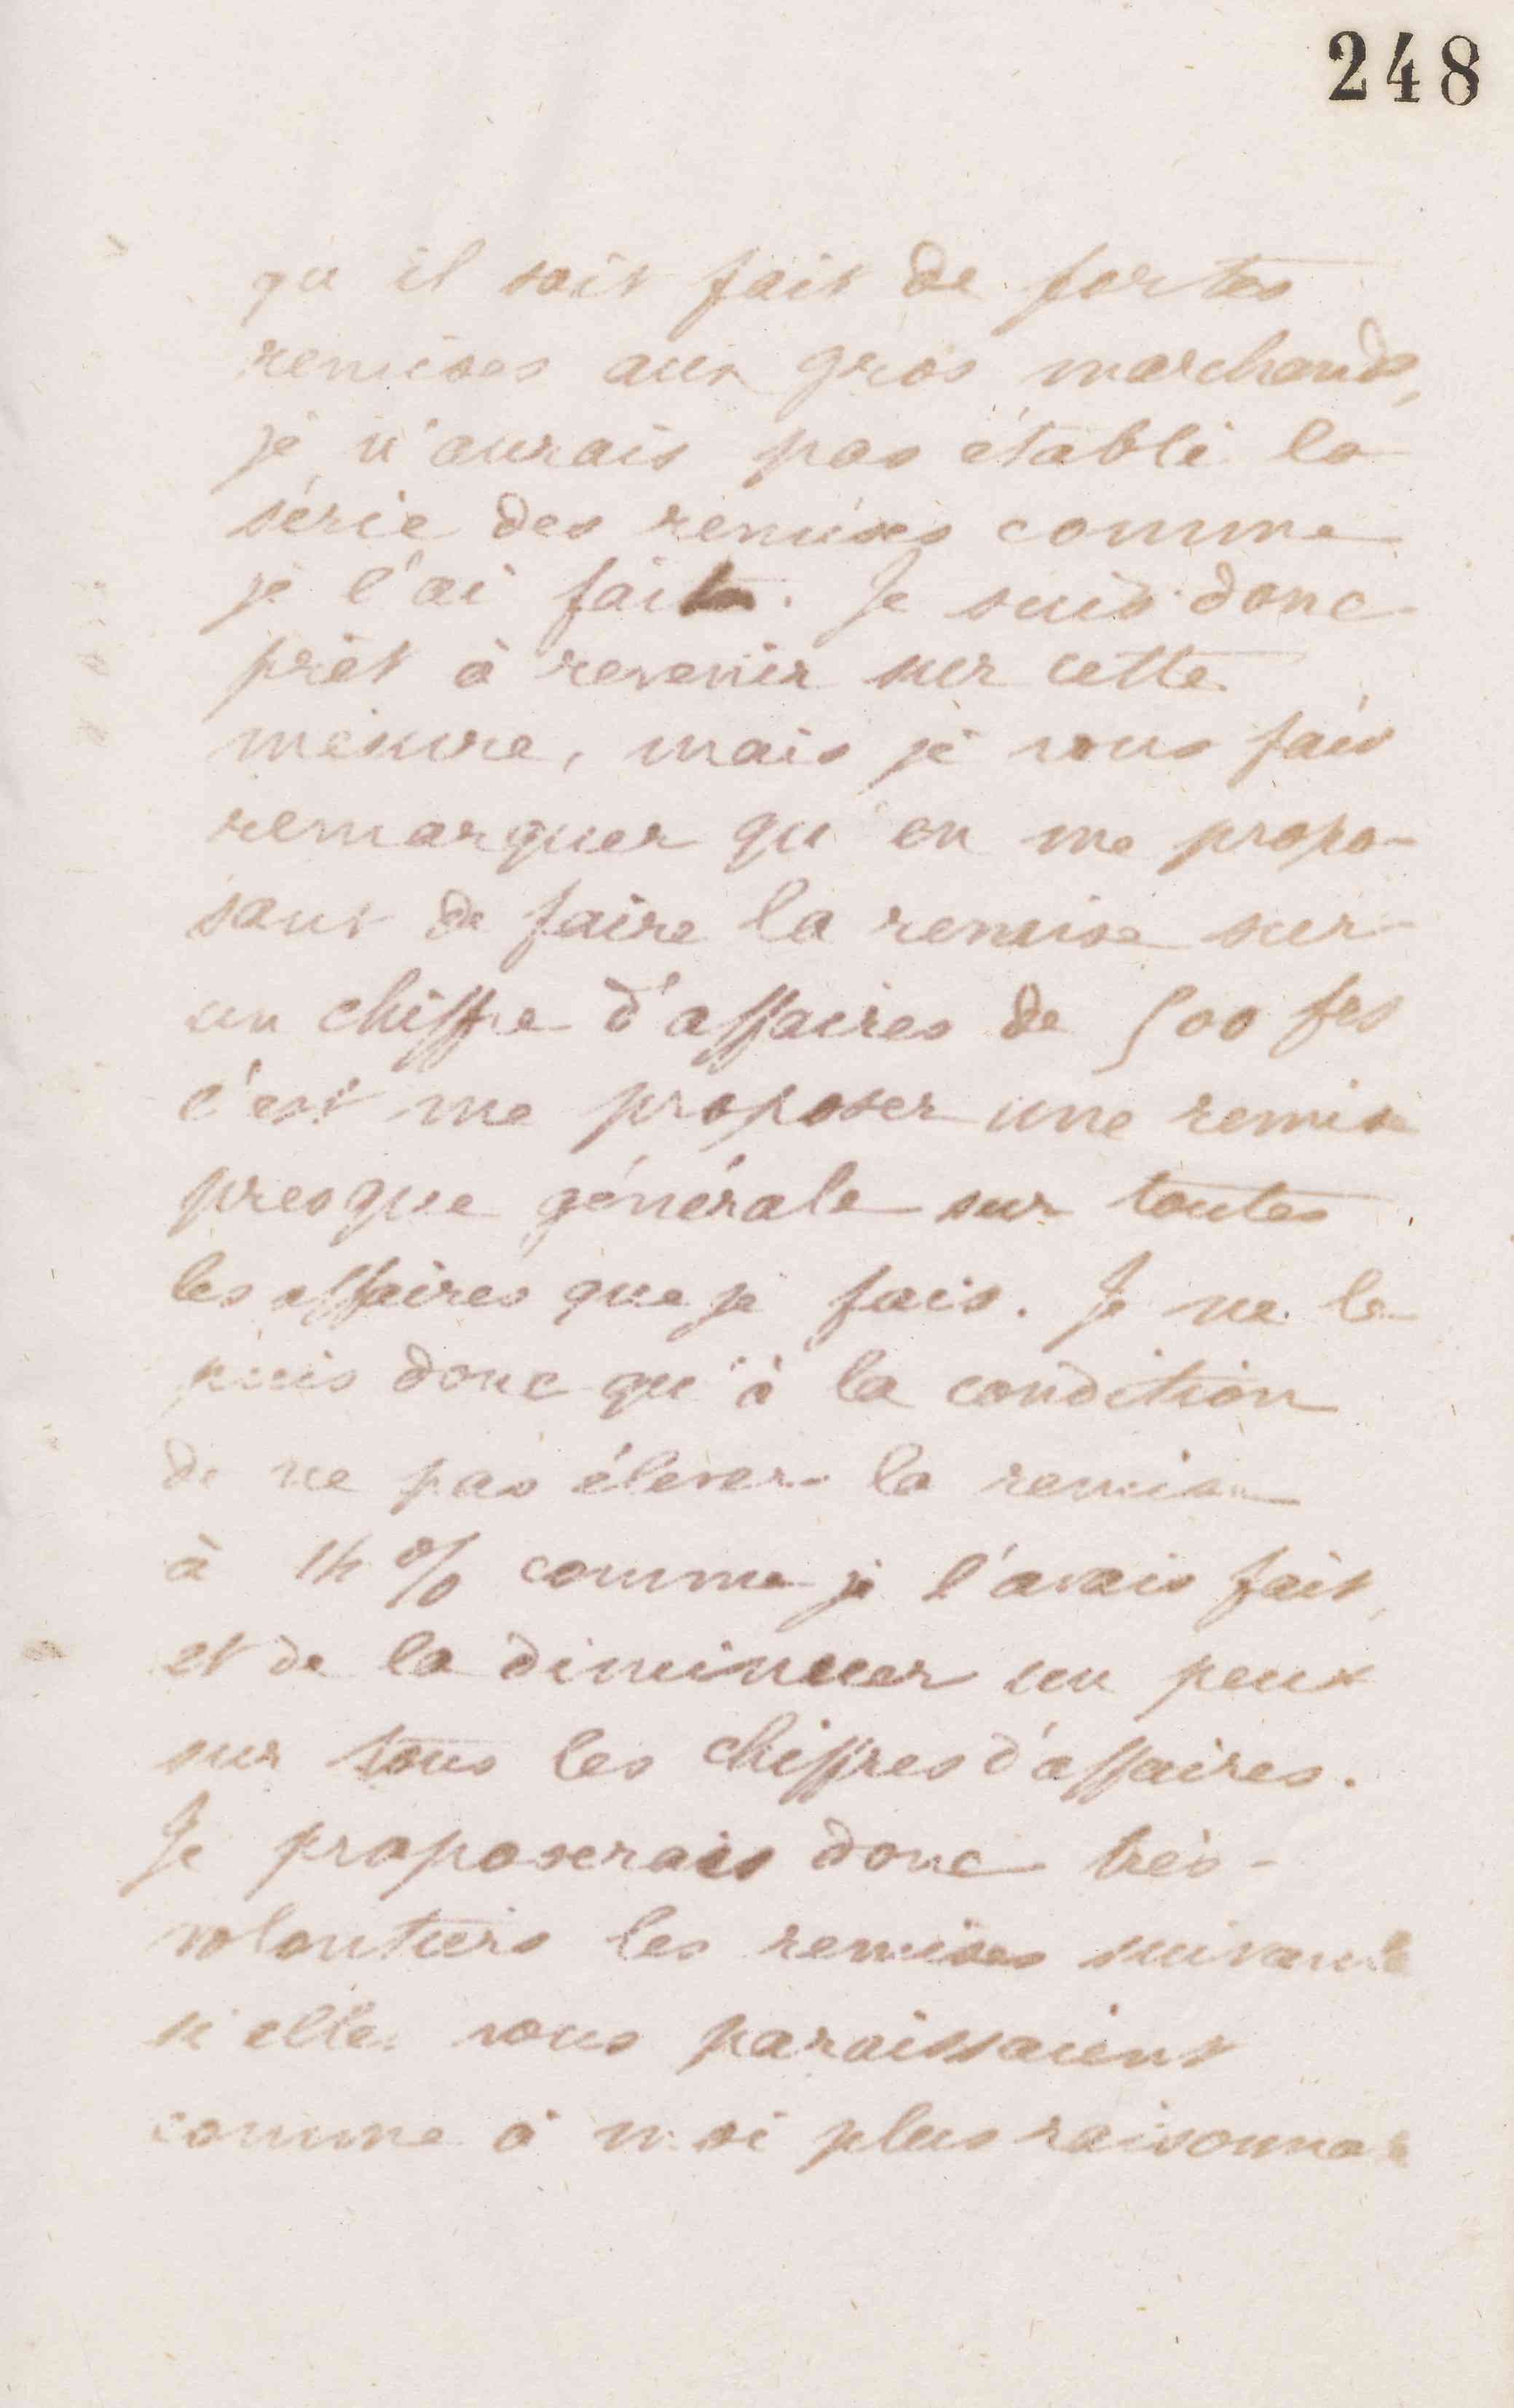 248
qu'il soit fait de fortes
remises aux gros marchands,
je n'aurais pas établi la
série des remises comme
je l'ai fait. Je suis donc
prêt à revenir sur cette
mesure, mais je vous fais
remarquer qu'en me propo-
sant de faire la remise sur
un chiffre d'affaires de 500 frs
c'est me proposer une remise
presque générale sur toutes
les affaires que je fais. Je ne le
puis donc qu'à la condition
de ne pas élever la remise
à 14 % comme je l'avais fait,
et de la diminuer un peu
sur tous les chiffres d'affaires.
Je proposerais donc très-
volontiers les remises suivante
si elles vous paraissaient
comme à moi plus raisonna